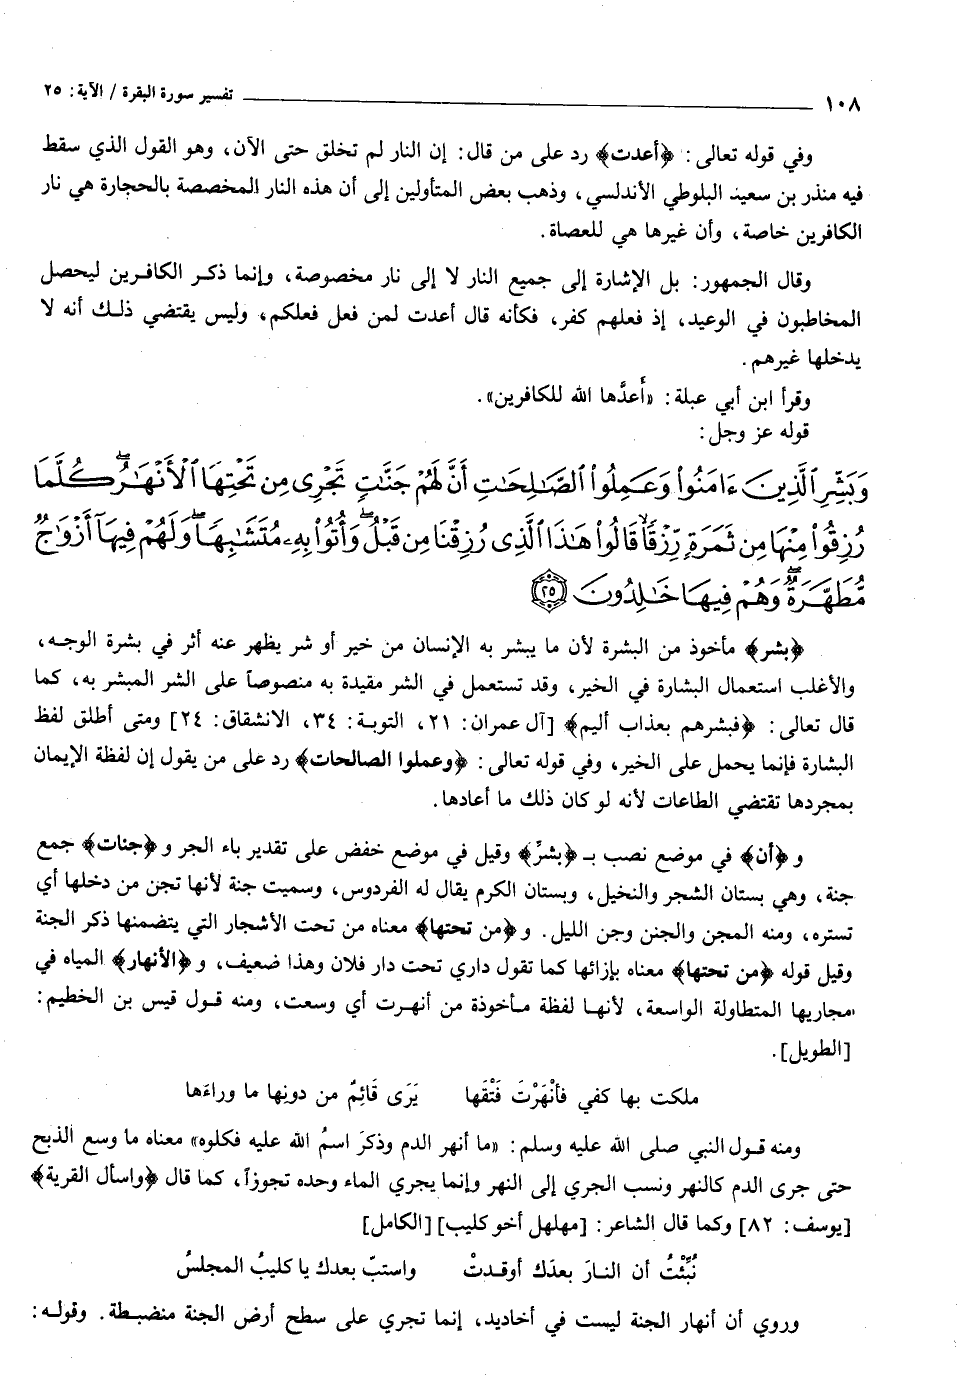 ١٠٨ ــــــــــــــــــــــــــــــــــــــــ تفسير سورة البقرة / الآية: ٢٥
وفي قوله تعالى: ﴿أعدت﴾ رد على من قال: إن النار لم تخلق حتى الآن، وهو القول الذي سقط
فيه منذر بن سعيد البلوطي الأندلسي، وذهب بعض المتأولين إلى أن هذه النار المخصصة بالحجارة هي نار
الكافرين خاصة، وأن غيرها هي للعصاة.
وقال الجمهور: بل الإشارة إلى جميع النار لا إلى نار مخصوصة، وإنما ذكر الكافرين ليحصل
المخاطبون في الوعيد، إذ فعلهم كفر، فكأنه قال أعدت لمن فعل فعلكم، وليس يقتضي ذلك أنه لا
يدخلها غيرهم.
وقرأ ابن أبي عبلة: «أَعدَّها الله للكافرين».
قوله عز وجل:
وَبَشِّرِ ٱلَّذِينَ ءَامَنُوا۟ وَعَمِلُوا۟ ٱلصَّـٰلِحَـٰتِ أَنَّ لَهُمْ جَنَّـٰتٍ تَجْرِى مِن تَحْتِهَا ٱلْأَنْهَـٰرُ ۖ كُلَّمَا
رُزِقُوا۟ مِنْهَا مِن ثَمَرَةٍ رِّزْقًا ۙ قَالُوا۟ هَـٰذَا ٱلَّذِى رُزِقْنَا مِن قَبْلُ ۖ وَأُتُوا۟ بِهِۦ مُتَشَـٰبِهًا ۖ وَلَهُمْ فِيهَآ أَزْوَٰجٌ
مُّطَهَّرَةٌ ۖ وَهُمْ فِيهَا خَـٰلِدُونَ ۝٢٥
﴿بشر﴾ مأخوذ من البشرة لأن ما يبشر به الإنسان من خير أو شر يظهر عنه أثر في بشرة الوجه،
والأغلب استعمال البشارة في الخير، وقد تستعمل في الشر مقيدة به منصوصاً على الشر المبشر به، كما
قال تعالى: ﴿فبشرهم بعذاب أليم﴾ [آل عمران: ٢١، التوبة: ٣٤، الانشقاق: ٢٤] ومتى أطلق لفظ
البشارة فإنما يحمل على الخير، وفي قوله تعالى: ﴿وعملوا الصالحات﴾ رد على من يقول إن لفظة الإيمان
بمجردها تقتضي الطاعات لأنه لو كان ذلك ما أعادها.
و ﴿أن﴾ في موضع نصب بـ ﴿بشرِّ﴾ وقيل في موضع خفض على تقدير باء الجر و ﴿جنات﴾ جمع
جنة، وهي بستان الشجر والنخيل، وبستان الكرم يقال له الفردوس، وسميت جنة لأنها تجن من دخلها أي
تستره، ومنه المجن والجنن وجن الليل. و ﴿من تحتها﴾ معناه من تحت الأشجار التي يتضمنها ذكر الجنة
وقيل قوله ﴿من تحتها﴾ معناه بإزائها كما تقول داري تحت دار فلان وهذا ضعيف، و ﴿الأنهار﴾ المياه في
مجاريها المتطاولة الواسعة، لأنها لفظة مأخوذة من أنهرت أي وسعت، ومنه قول قيس بن الخطيم:
[الطويل].
ملكت بها كفي فأَنْهَرْتَ فَتْقَها     يَرَى قَائِمٌ من دونِها ما وراءَها
ومنه قول النبي صلى الله عليه وسلم: «ما أنهر الدم وذكرَ اسمُ الله عليه فكلوه» معناه ما وسع الذبح
حتى جرى الدم كالنهر ونسب الجري إلى النهر وإنما يجري الماء وحده تجوزاً، كما قال ﴿واسأل القرية﴾
[يوسف: ٨٢] وكما قال الشاعر: [مهلهل أخو كليب] [الكامل]
نُبِّئْتُ أن النارَ بعدَك أوقدتْ     واستبّ بعدك يا كليبُ المجلسُ
وروي أن أنهار الجنة ليست في أخاديد، إنما تجري على سطح أرض الجنة منضبطة. وقوله: